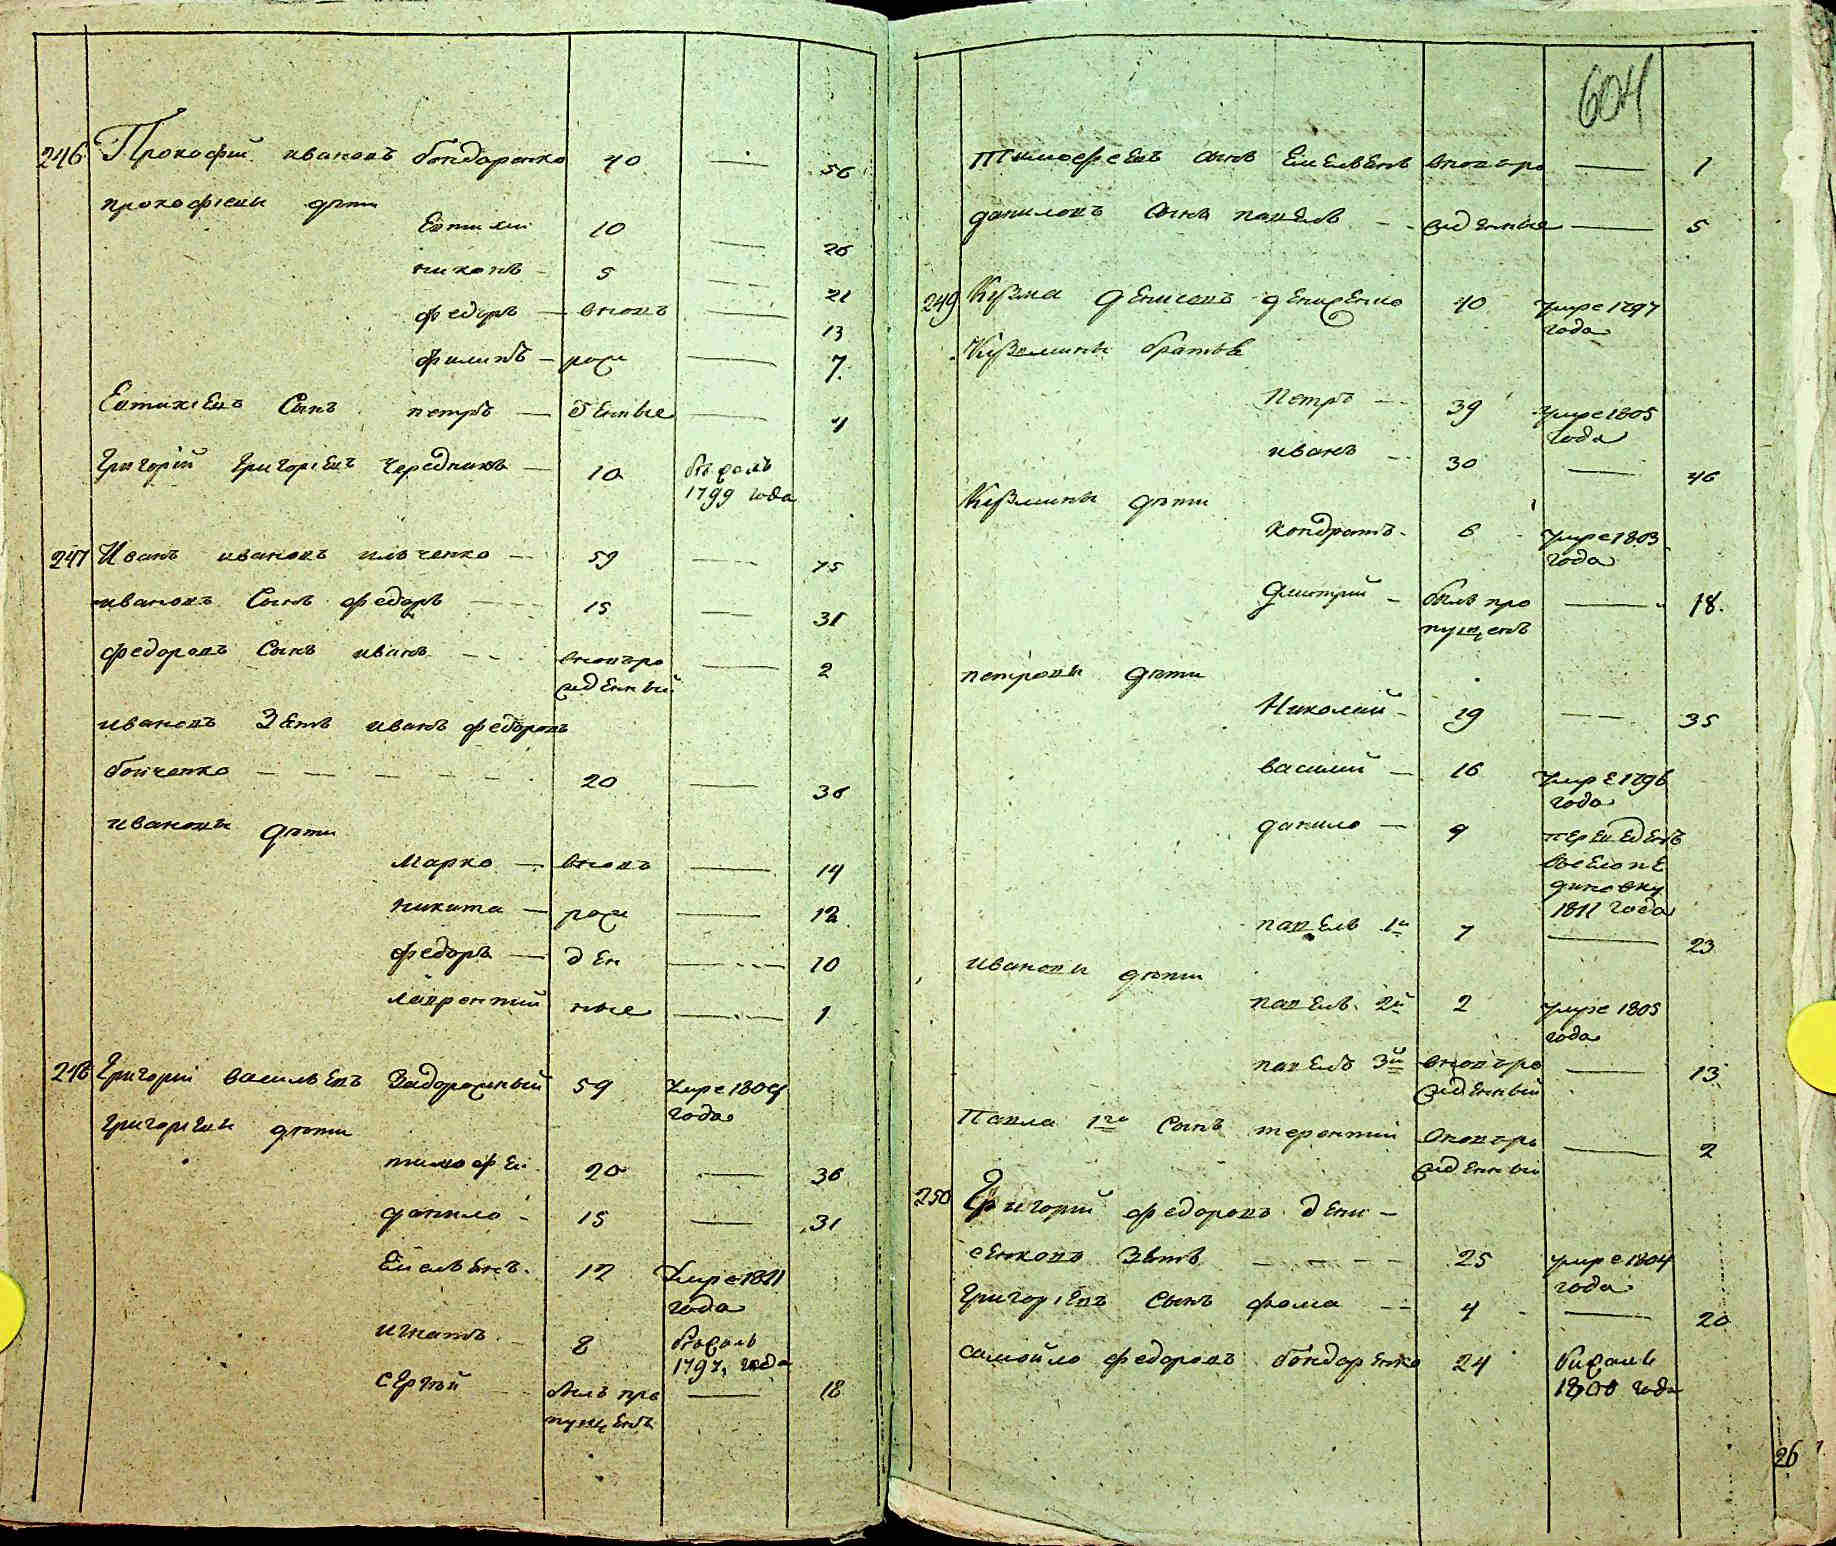 246 Прокофий ивановъ бондаренко 40 — 56
прокофіевы дѣти
Евтихи 10 — 26
никонъ 5 — 21
федоръ — вновъ — 13
филипъ — рож — 7
Евтихіевъ Сынъ петръ — денные — 4
Григорій Григоріевъ чередникъ — 10 бѣжалъ
1799 года
247 Иванъ ивановъ ильченко — 59 — 75
ивановъ Сынъ федоръ 15 — 31
федоровъ Сынъ иванъ вновъро — 2
жденный
ивановъ Зять иванъ федоровъ
бойченко 20 — 36
ивановы дѣти
Марко — вновъ — 14
никита — рож — 12
федоръ — ден — 10
лаврентий ные — 1
248 Григорій васильевъ Задорожный 59 умре 1804
года
Григоріевы дѣти
тимофей 20 — 36
данило 15 — 31
Емельянъ 12 умре 1811
года
игнатъ 8 бѣжалъ
1797 года
Сергѣй былъ про — 18
пущенъ
604
Тимофеевъ сынъ Емельянъ вновъро — 1
даниловъ Сынъ павелъ жденные — 5
249 Кузма денисовъ денисенко 40 умре 1797
года
Кузмины братья
Петръ 39 умре 1805
года
иванъ 30 — 46
Кузмины дѣти
Кондратъ 6 умре 1803
года
Дмитрий — былъ про — 18
пущенъ
петровы дѣти
Николай 19 — 35
василий — 16 умре 1796
года
данило — 9 переведенъ
воселоне
диновку
1811 года
павелъ 1й 7 — 23
ивановы дѣти
павелъ 2й 2 умре 1805
года
павелъ 3й вновъро — 13
жденный
Павла 1го Сынъ терентий вновъро — 2
жденный
250 Григорий федоровъ дени —
сенковъ Зять 25 умре 1804
года
Григоріевъ Сынъ фома 4 — 20
самойло федоровъ бондаренко 24 бижалъ
1800 года
26